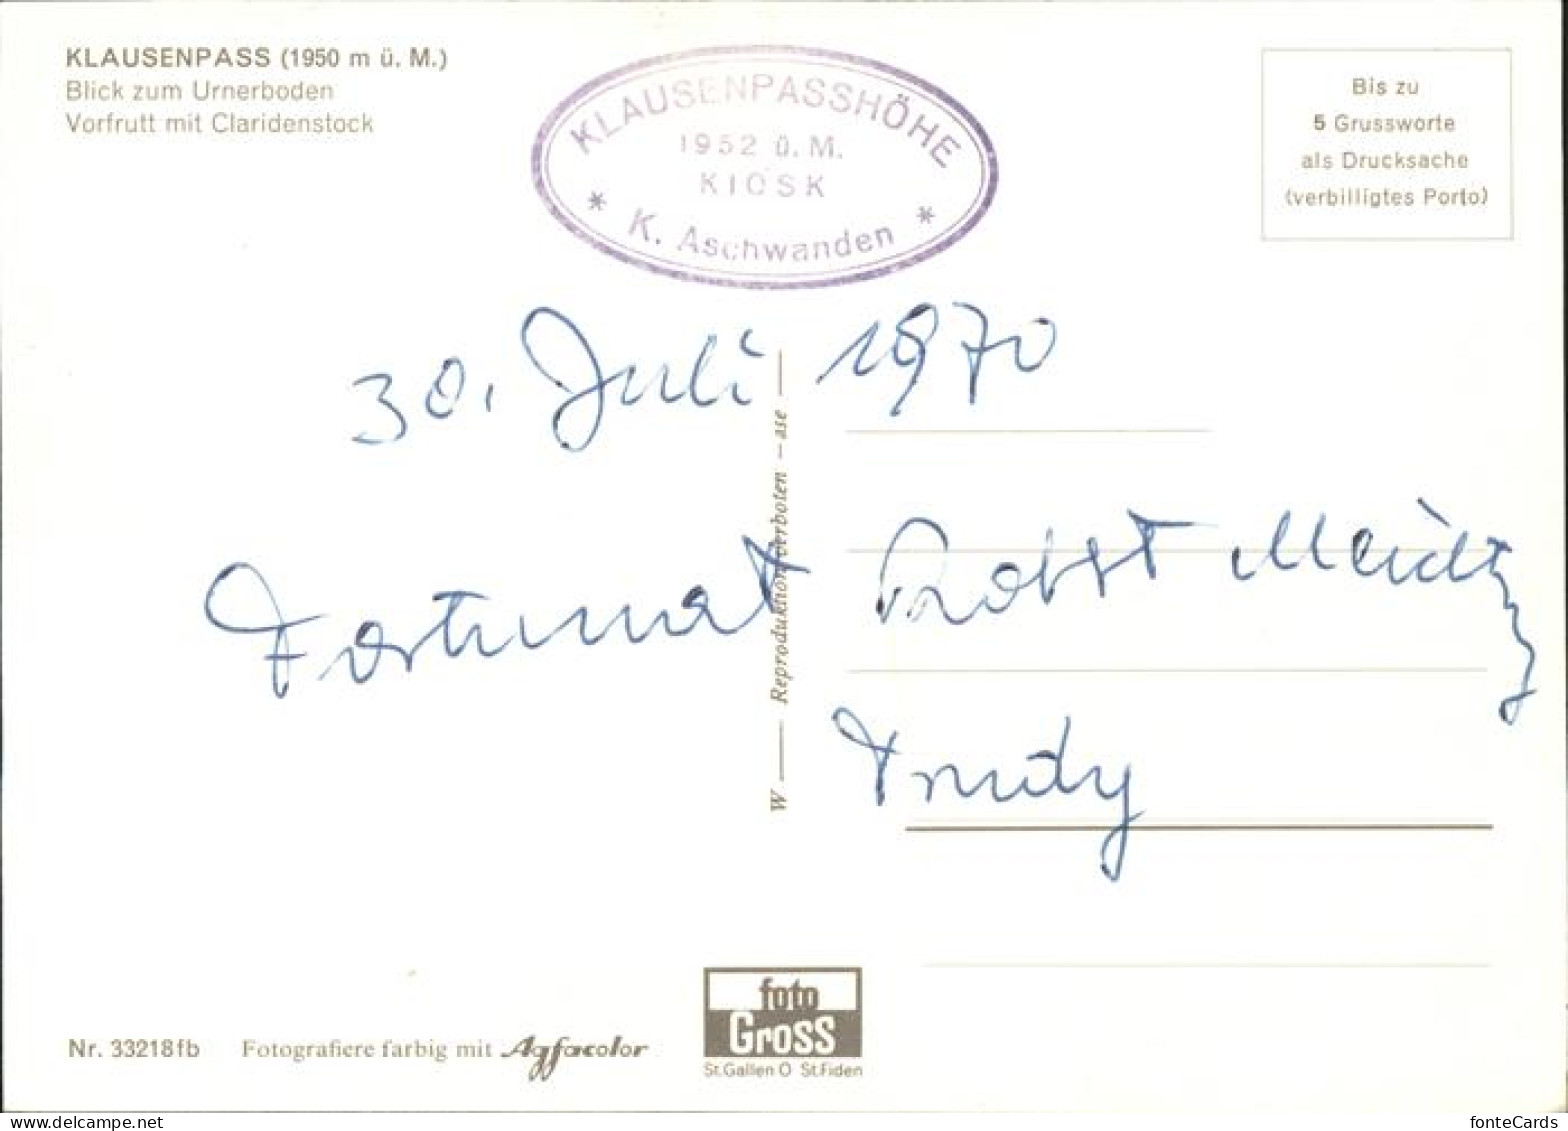 KLAUSENPASS (1950 m ü. M.)
Blick zum Urnerboden
Vorfrutt mit Claridenstock
KLAUSENPASSHÖHE
1952 ü. M.
KIOSK
* K. Aschwanden *
Bis zu
5 Grussworte
als Drucksache
(verbilligtes Porto)
30. Juli 1970
Fortunat Probst
Trudy
W — Reproduktion verboten – ase —
foto
Gross
St.Gallen O St.Fiden
Nr. 33218fb Fotografiere farbig mit Agfacolor
www.delcampe.net
fonteCards